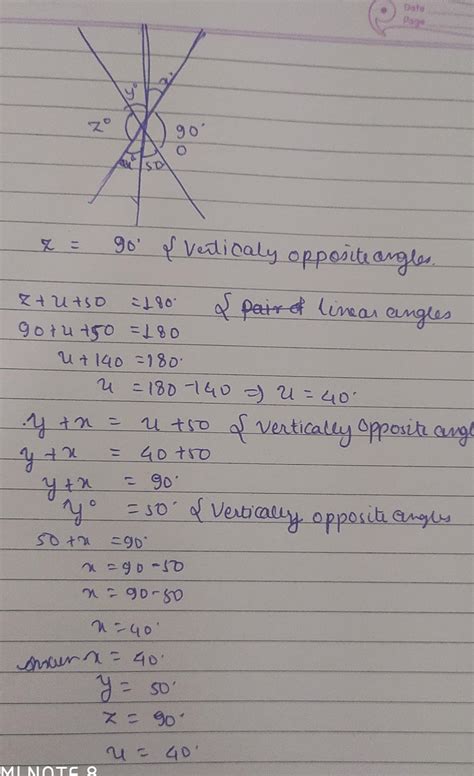 Date
Page
y° x°
z° 90°
O
u° 50
z = 90° { Verticaly opposite angles.
z+u+50 =180° { pair of linear angles
90+u+50 =180
u+140 =180°
u =180-140 => u = 40°
y +x = u +50 { Vertically Opposite angl
y +x = 40+50
y+x = 90°
y° =50° { Vertically opposite angles
50+x =90°
x =90-50
x =90-50
x =40°
x = 40°
y = 50°
z = 90°
u = 40°
MI NOTE 8